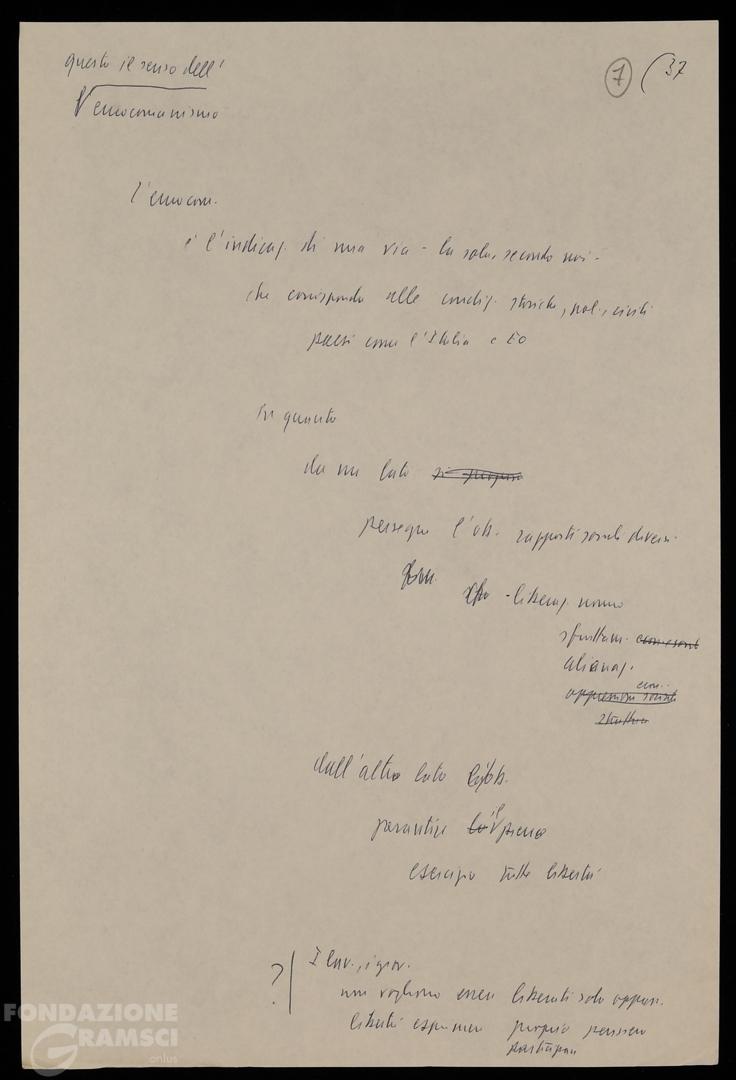 questo il senso dell'
eurocomunismo
7 (37
l'eurocom.
è l'indicaz. di una via - la sola, secondo noi -
che corrisponda alle condiz. storiche, pol., civili
paesi come l'Italia e EO
in quanto
da un lato si propone
persegue l'ob. rapporti sociali diversi
- liberaz. uomo
sfruttam.
alienaz.
oppressione sociale
dall'altro lato l'ob.
garantire il pieno
esercizio tutte libertà
? I lav., i giov.
non vogliono essere liberati solo oppress.
libertà esprimere proprio pensiero
partecipare
FONDAZIONE
GRAMSCI
onlus